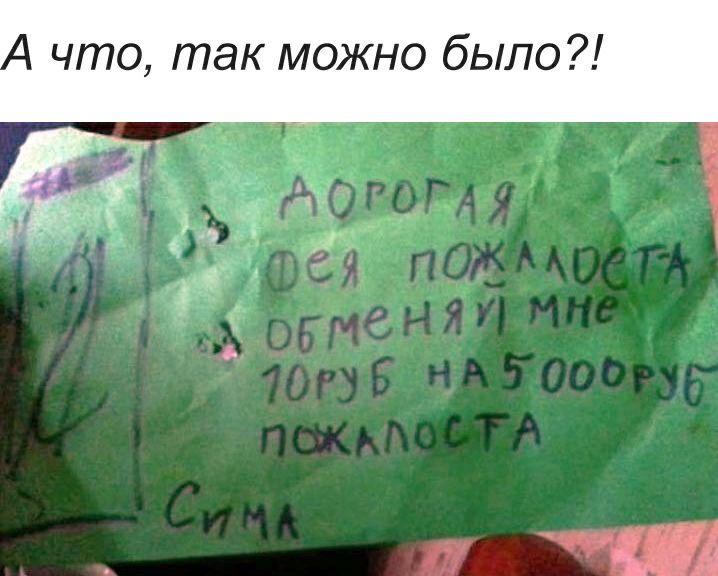 А что, так можно было?!
ДОРОГАЯ
ФЕЯ ПОЖАЛОСТА
ОБМЕНЯЙ МНЕ
10РУБ НА 5000РУБ
ПОЖАЛОСТА
СИМА